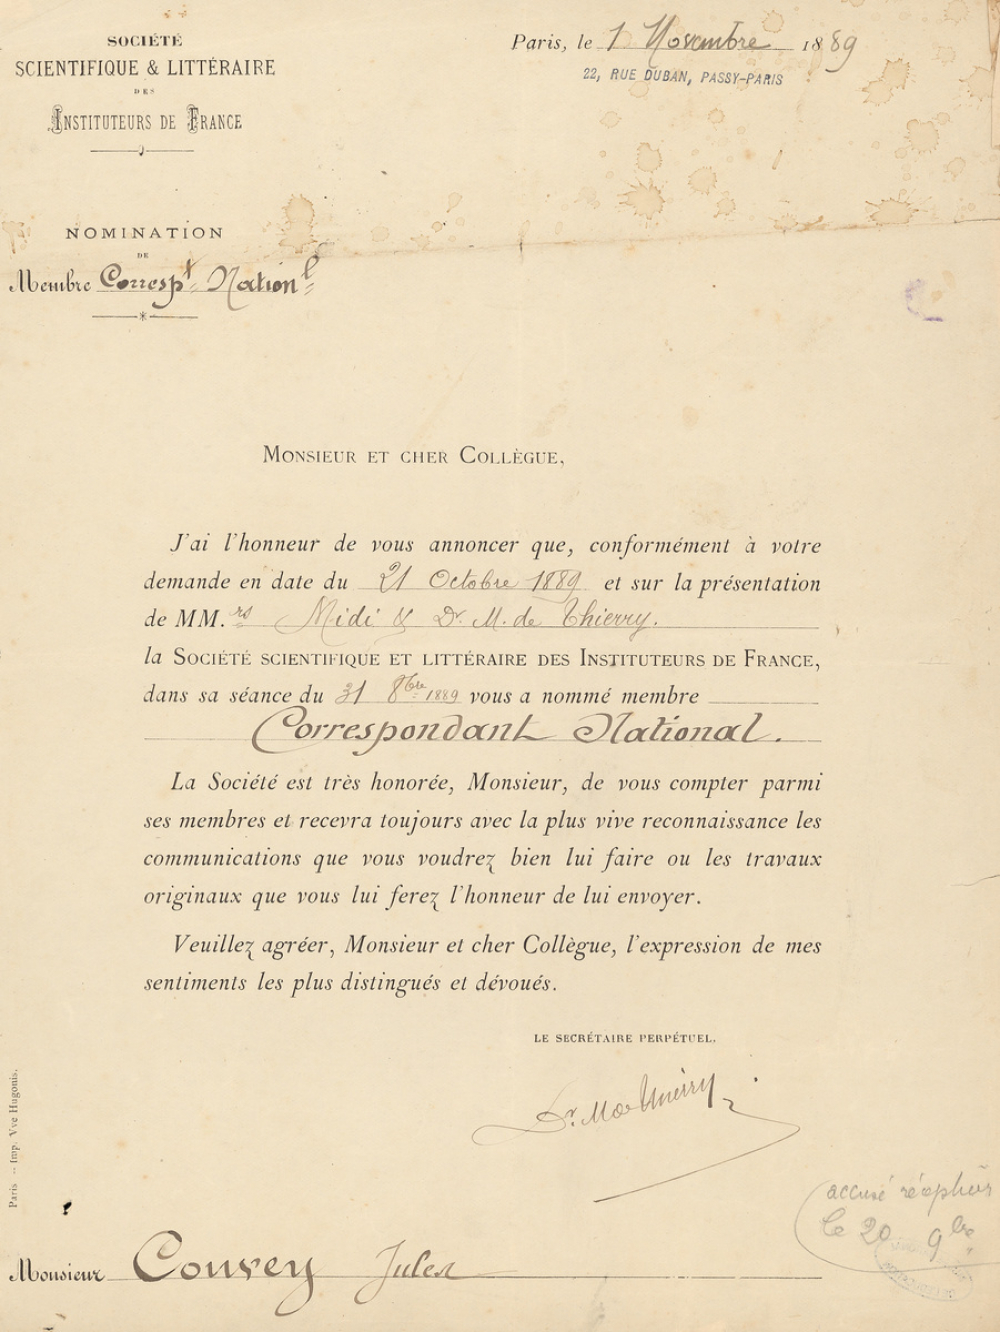 SOCIÉTÉ
SCIENTIFIQUE & LITTÉRAIRE
DES
INSTITUTEURS DE FRANCE
Paris, le 1 Novembre 1889
22, RUE DUBAN, PASSY-PARIS
NOMINATION
DE
Membre Correspt Nationl
MONSIEUR ET CHER COLLÈGUE,
J'ai l'honneur de vous annoncer que, conformément à votre
demande en date du 21 Octobre 1889 et sur la présentation
de MM.rs Midi & Dr. M. de Thierry.
la SOCIÉTÉ SCIENTIFIQUE ET LITTÉRAIRE DES INSTITUTEURS DE FRANCE,
dans sa séance du 31 8bre 1889 vous a nommé membre
Correspondant National.
La Société est très honorée, Monsieur, de vous compter parmi
ses membres et recevra toujours avec la plus vive reconnaissance les
communications que vous voudrez bien lui faire ou les travaux
originaux que vous lui ferez l'honneur de lui envoyer.
Veuillez agréer, Monsieur et cher Collègue, l'expression de mes
sentiments les plus distingués et dévoués.
LE SECRÉTAIRE PERPÉTUEL.
Dr. M de Thierry
Paris -- Imp. Vve Hugonis.
accusé
le 20 9bre
Monsieur Couvey Jules